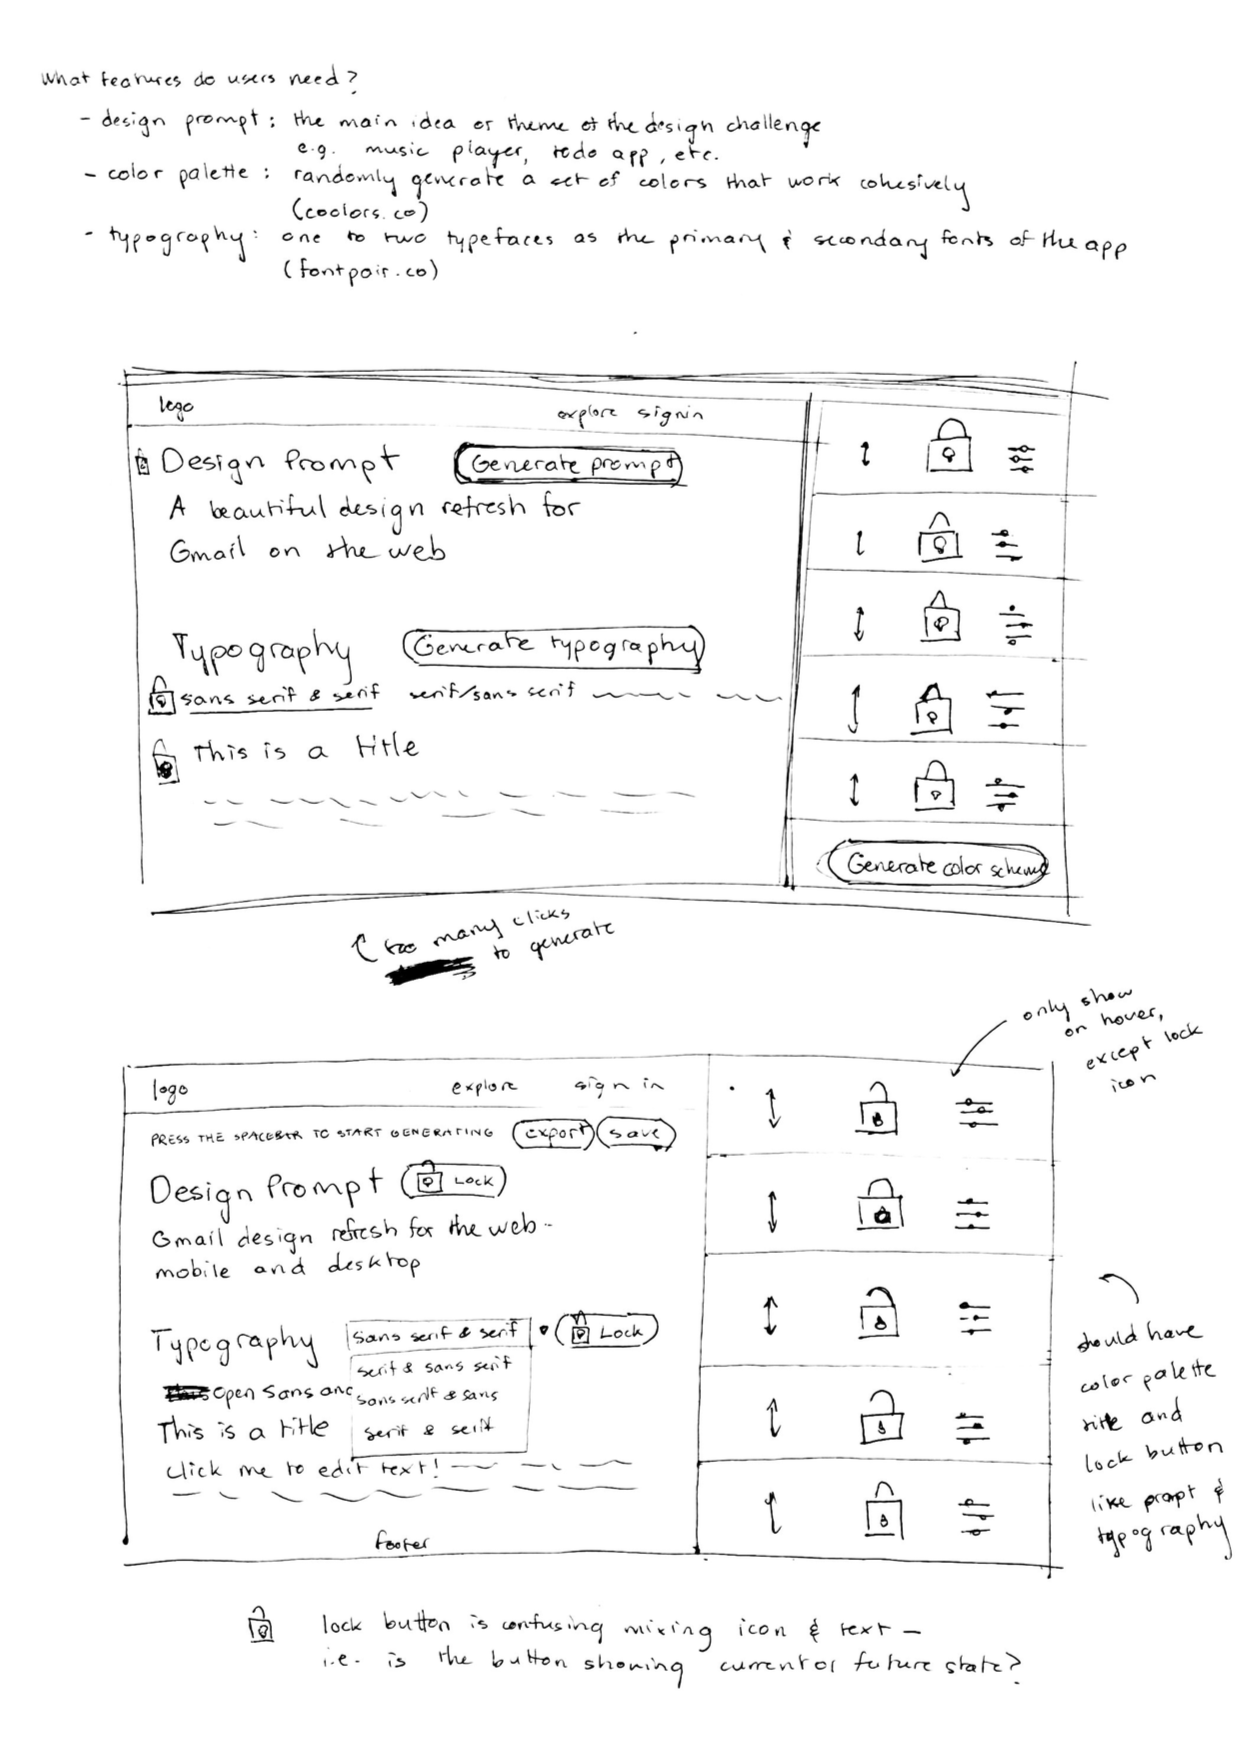 What features do users need?
- design prompt: the main idea or theme of the design challenge
e.g. music player, todo app, etc.
- color palette: randomly generate a set of colors that work cohesively
(coolors.co)
- typography: one to two typefaces as the primary & secondary fonts of the app
(fontpair.co)
logo explore signin
Design Prompt Generate prompt
A beautiful design refresh for
Gmail on the web
Typography Generate typography
sans serif & serif serif/sans serif
This is a title
Generate color scheme
↑ too many clicks
to generate
only show
on hover,
except lock
icon
logo explore sign in
PRESS THE SPACEBAR TO START GENERATING export save
Design Prompt Lock
Gmail design refresh for the web -
mobile and desktop
Typography sans serif & serif Lock
serif & sans serif
Open Sans and sans serif & sans
This is a title serif & serif
Click me to edit text!
footer
should have
color palette
title and
lock button
like prompt &
typography
lock button is confusing mixing icon & text -
i.e. is the button showing current or future state?